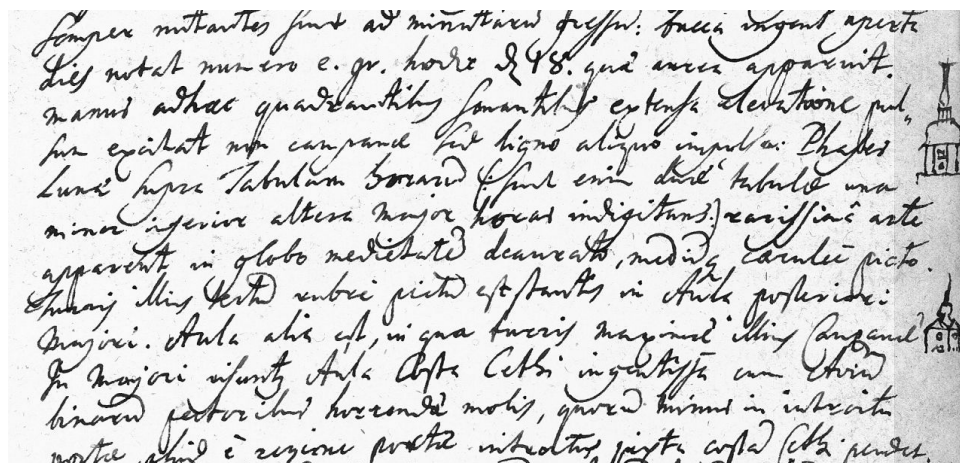 semper nutantes sunt ad minutarum gressum: bucca ingent aperta
Dies notat numero e. gr. hodie d 18. quae aurea apparuit.
manus adhaec quadrantibus sonantibus extensa elevatione pul„
sum excitat non campanae sed ligno aliquo impulso: Phases
Lunae supra Tabulam Horarum (: sunt enim duae tabulae una
minor inferior altera major horas indigitans:) rarissima arte
apparent, in globo medietate deaurato, mediaq caerulee picto.
Turris illius tectum rubri pictum est stantis in Aula posteriori
Majori. Aula alia est, in qua turris maximae illius Campanae
In Majori visuntq Aula Costa Cethi ingentissa cum
binarum pectoribus horrendae molis, quorum minus in introitu
portae aliud è regione portae introitus juxta costam Cethi pendet.